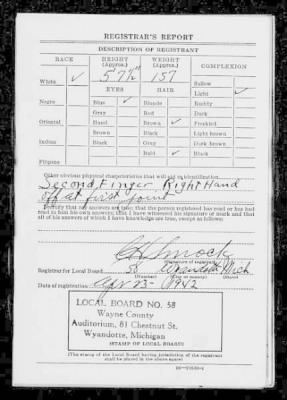 REGISTRAR'S REPORT
DESCRIPTION OF REGISTRANT
RACE HEIGHT (Approx.) WEIGHT (Approx.) COMPLEXION
5'7½" 157
White ✓ Sallow
EYES HAIR Light ✓
Negro Blue ✓ Blonde Ruddy
Gray Red Dark
Oriental Hazel Brown ✓ Freckled
Brown Black Light brown
Indian Black Gray Dark brown
Bald ✓ Black
Filipino
Other obvious physical characteristics that will aid in identification
Second Finger Right Hand
at first joint
I certify that my answers are true; that the person registered has read or has had
read to him his own answers; that I have witnessed his signature or mark and that
all of his answers of which I have knowledge are true, except as follows:
(Signature of registrar)
Registrar for Local Board 58 Wyandotte Mich
(Number) (City or county) (State)
Date of registration Apr 23- 1942
LOCAL BOARD NO. 58
Wayne County
Auditorium, 81 Chestnut St.
Wyandotte, Michigan
(STAMP OF LOCAL BOARD)
(The stamp of the Local Board having jurisdiction of the registrant
shall be placed in the above space)